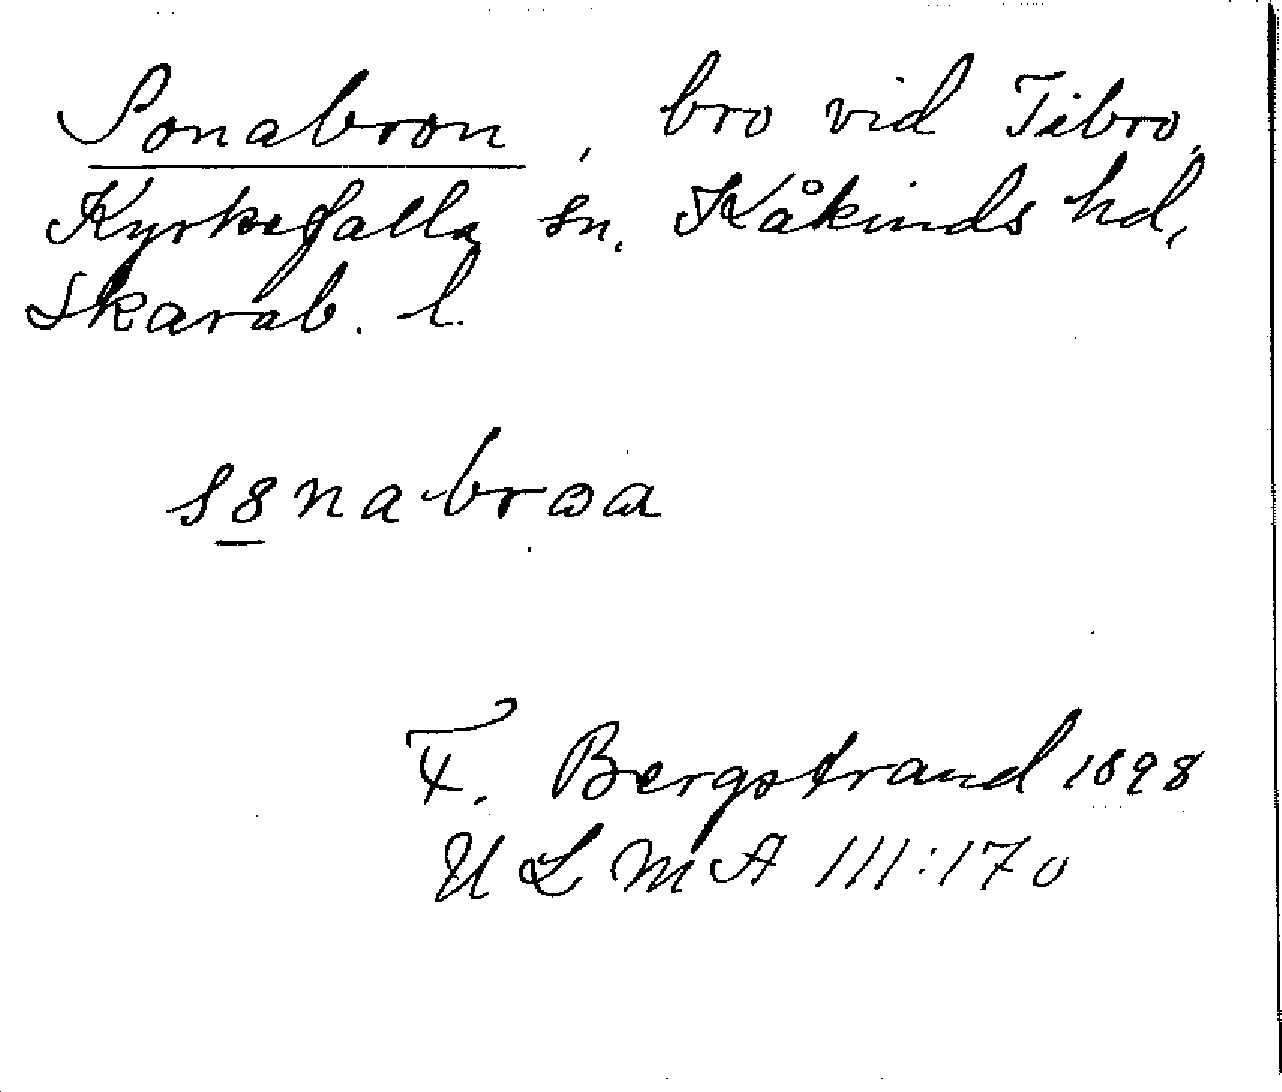 Sonabron, bro vid Tibro,
Kyrkefalla sn. Kåkinds hd,
Skarab. l.
s8nabroa
F. Bergstrand 1898
ULMA 111:170